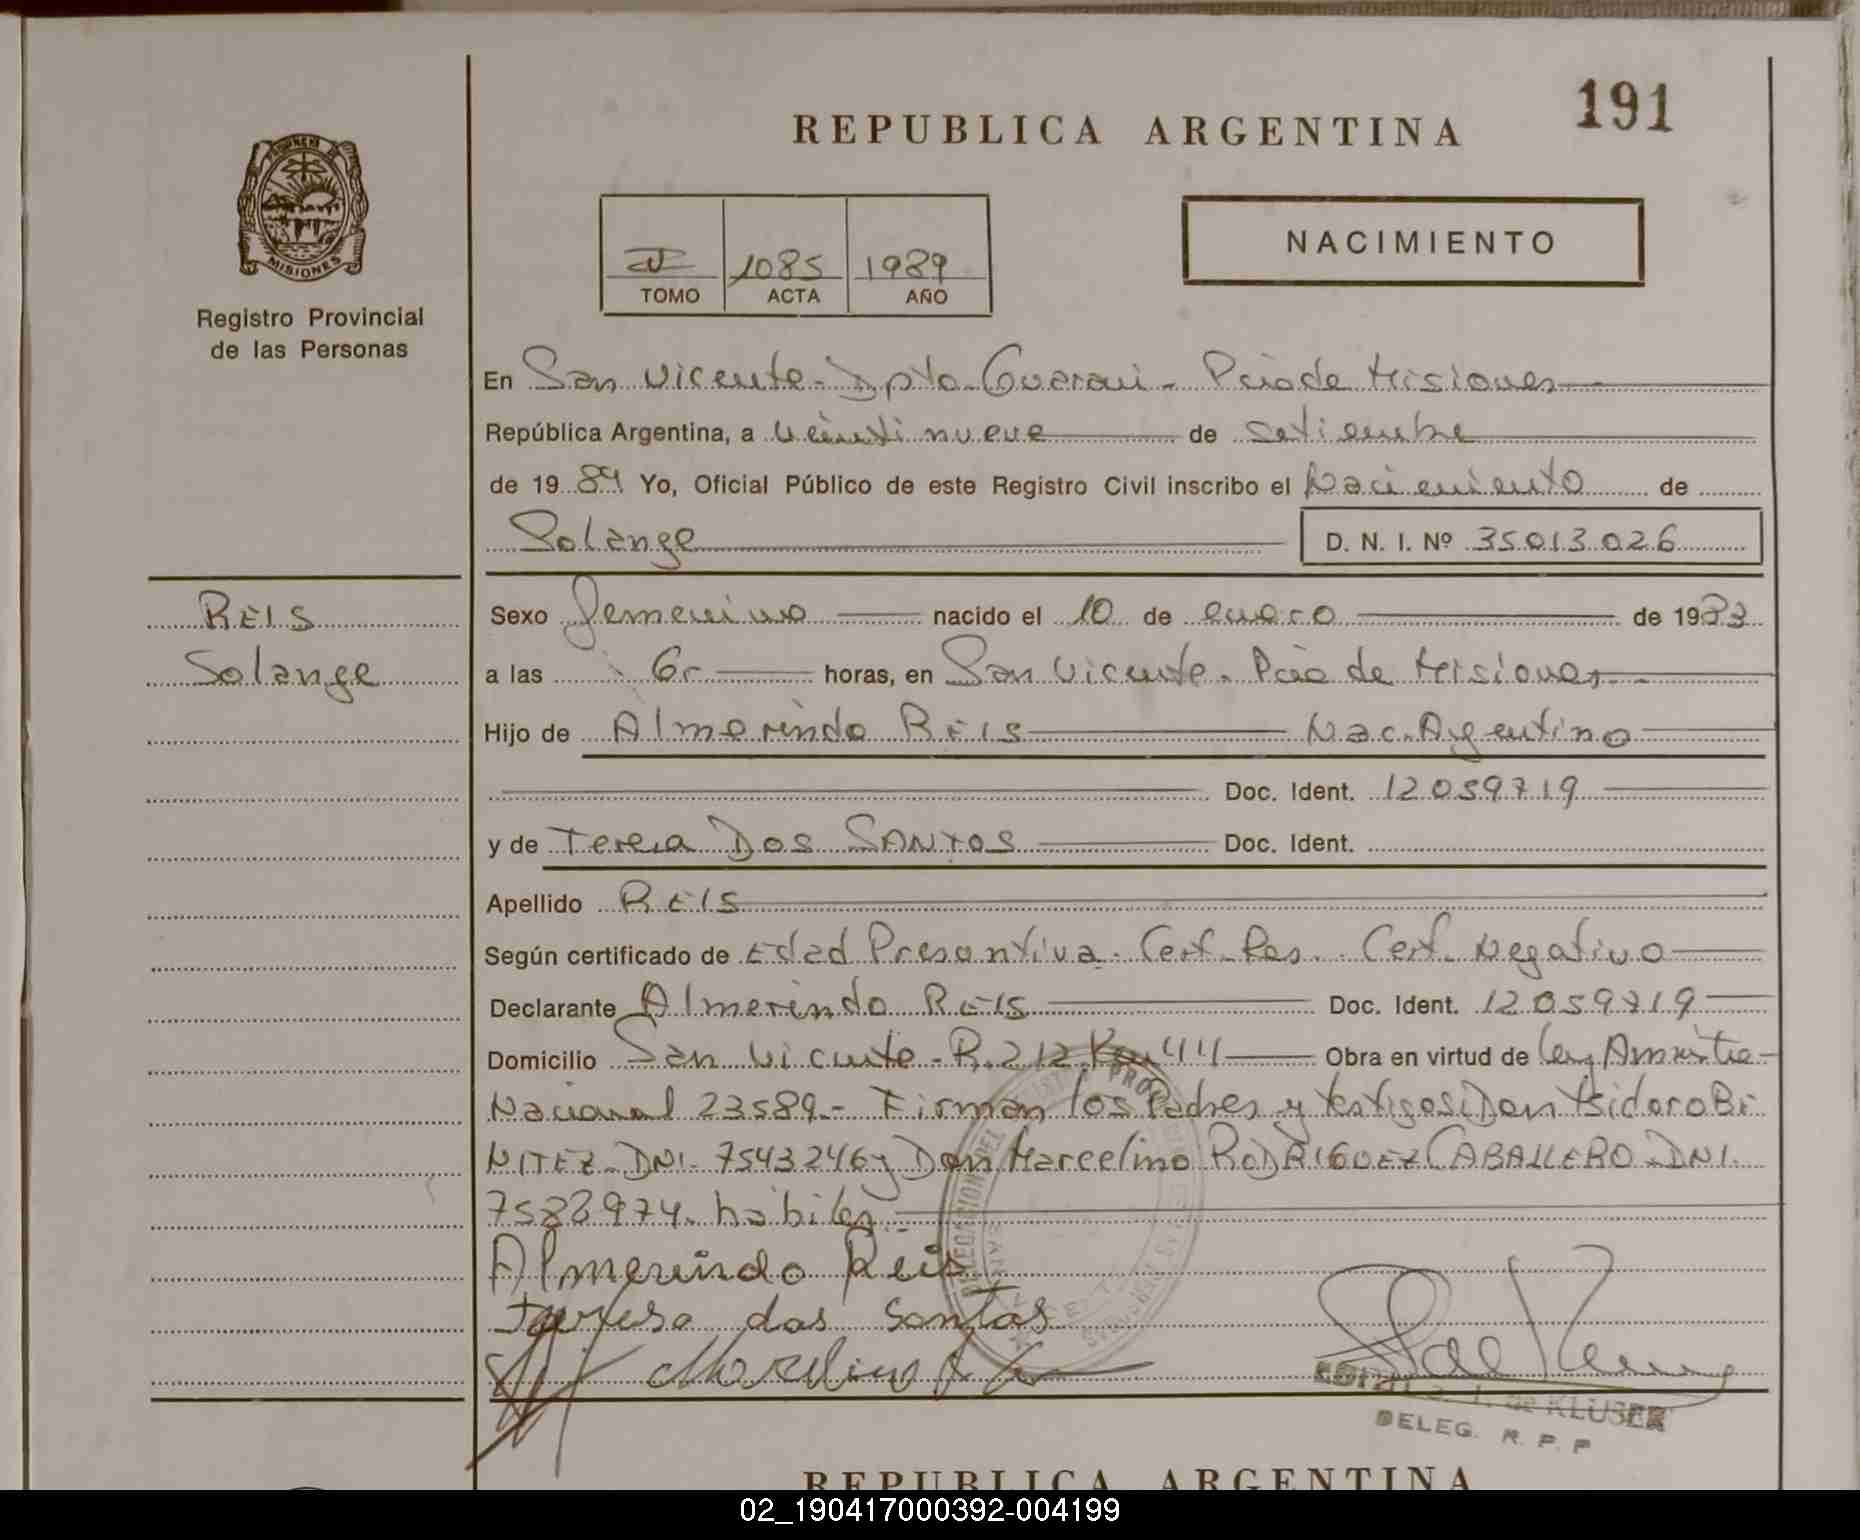 191
REPUBLICA ARGENTINA
MISIONES
Registro Provincial
de las Personas
IV 1085 1989
TOMO ACTA AÑO
NACIMIENTO
En San Vicente - Dpto. Guarani - Pcia de Misiones
República Argentina, a veinti nueve de setiembre
de 1989 Yo, Oficial Público de este Registro Civil inscribo el Nacimiento de
Solange D. N. I. Nº 35013026
REIS
Solange
Sexo femenino nacido el 10 de enero de 1983
a las 6 horas, en San Vicente - Pcia de Misiones
Hijo de Almerindo REIS Nac. Argentino
Doc. Ident. 12059719
y de Teresa DOS SANTOS Doc. Ident.
Apellido REIS
Según certificado de Edad Presontiva. Cert. Res. Cert. Negativo
Declarante Almerindo REIS Doc. Ident. 12059719
Domicilio San Vicente - R. 212 Km 44 Obra en virtud de ley Amnistia
Nacional 23589.- Firman los Padres y testigos: Don Isidoro BE
NITEZ - DNI. 7543246 y Don Marcelino RODRIGUEZ CABALLERO - DNI.
7588974. habiles
Almerindo Reis
Teresa dos Santos
Marcelino
de KLUSER
DELEG. R. P. P
REPUBLICA ARGENTINA
02_190417000392-004199